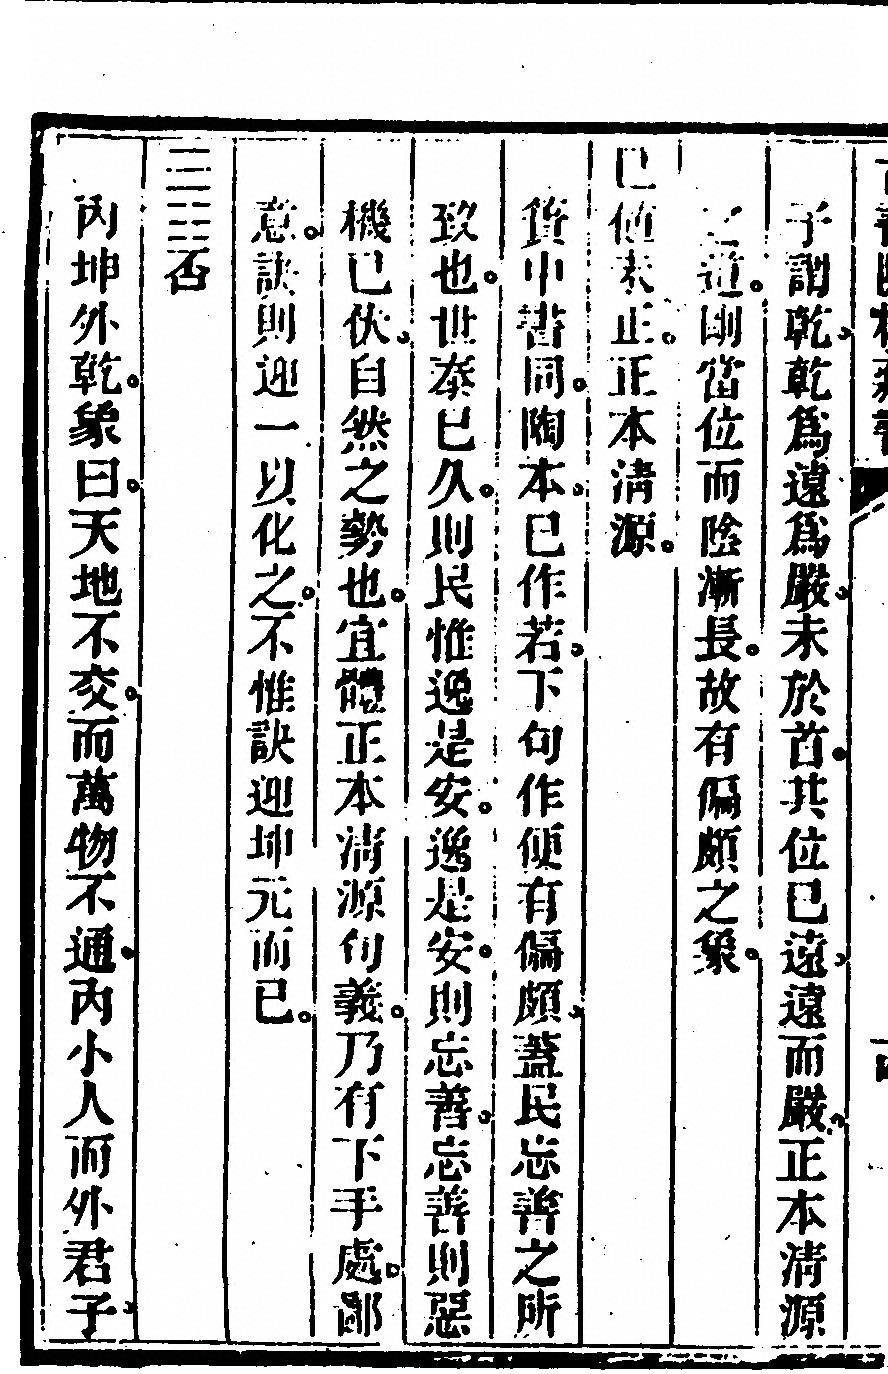 子謂乾乾爲遠爲嚴未於首其位已遠遠而嚴正本清源
之道剛當位而陰漸長故有偏頗之象
已值未正正本清源
貨中書同陶本已作若下句作便有偏頗蓋民忘善之所
致也世泰已久則民惟逸是安逸是安則忘善忘善則惡
機已伏自然之勢也宜體正本清源句義乃有下手處鄙
意訣則迎一以化之不惟訣迎坤元而已
䷋否
內坤外乾彖曰天地不交而萬物不通內小人而外君子